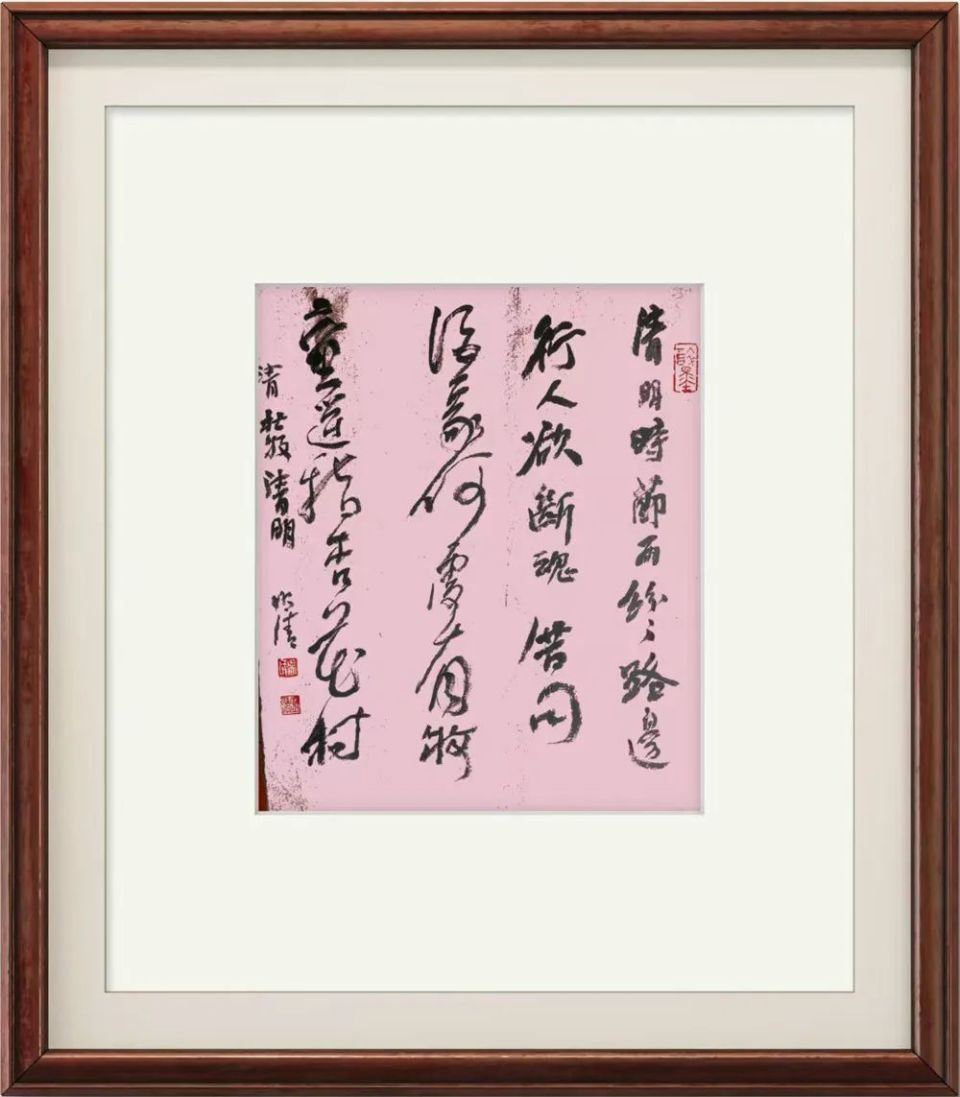 清明時節雨紛〻路邊
行人欲斷魂借問
酒家何處有牧
童遥指杏花村
清杜牧清明